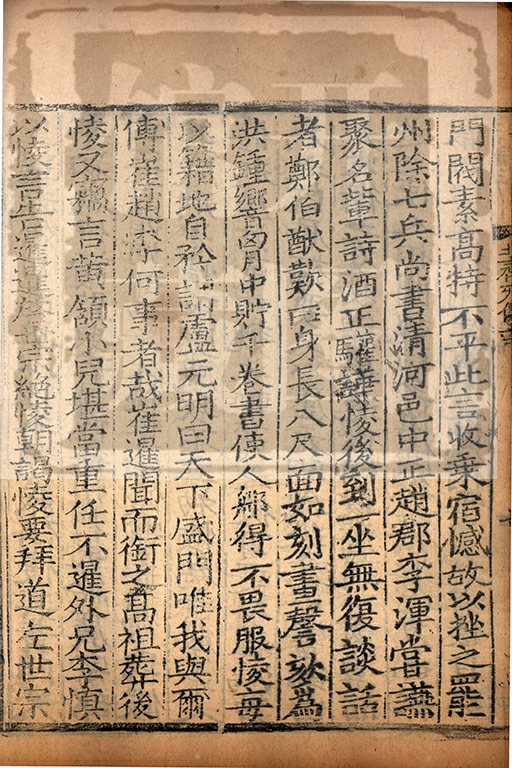 門閥素高特不平此言收乘宿憾故以挫之罷
州除七兵尚書清河邑中正趙郡李渾嘗讌
聚名輩詩酒正譁㥄後到一坐無復談話
者鄭伯猷歎曰身長八尺面如刻畫謦欬為
洪鍾響胷中貯千卷書使人那得不畏服㥄每
以籍地自矜謂盧元明曰天下盛門唯我與爾
博崔趙李何事者哉崔暹聞而銜之高祖葬後
㥄又竊言黃頷小兒堪當重任不暹外兄李慎
以㥄言告暹暹宗絕㥄朝謁㥄要拜道左世宗